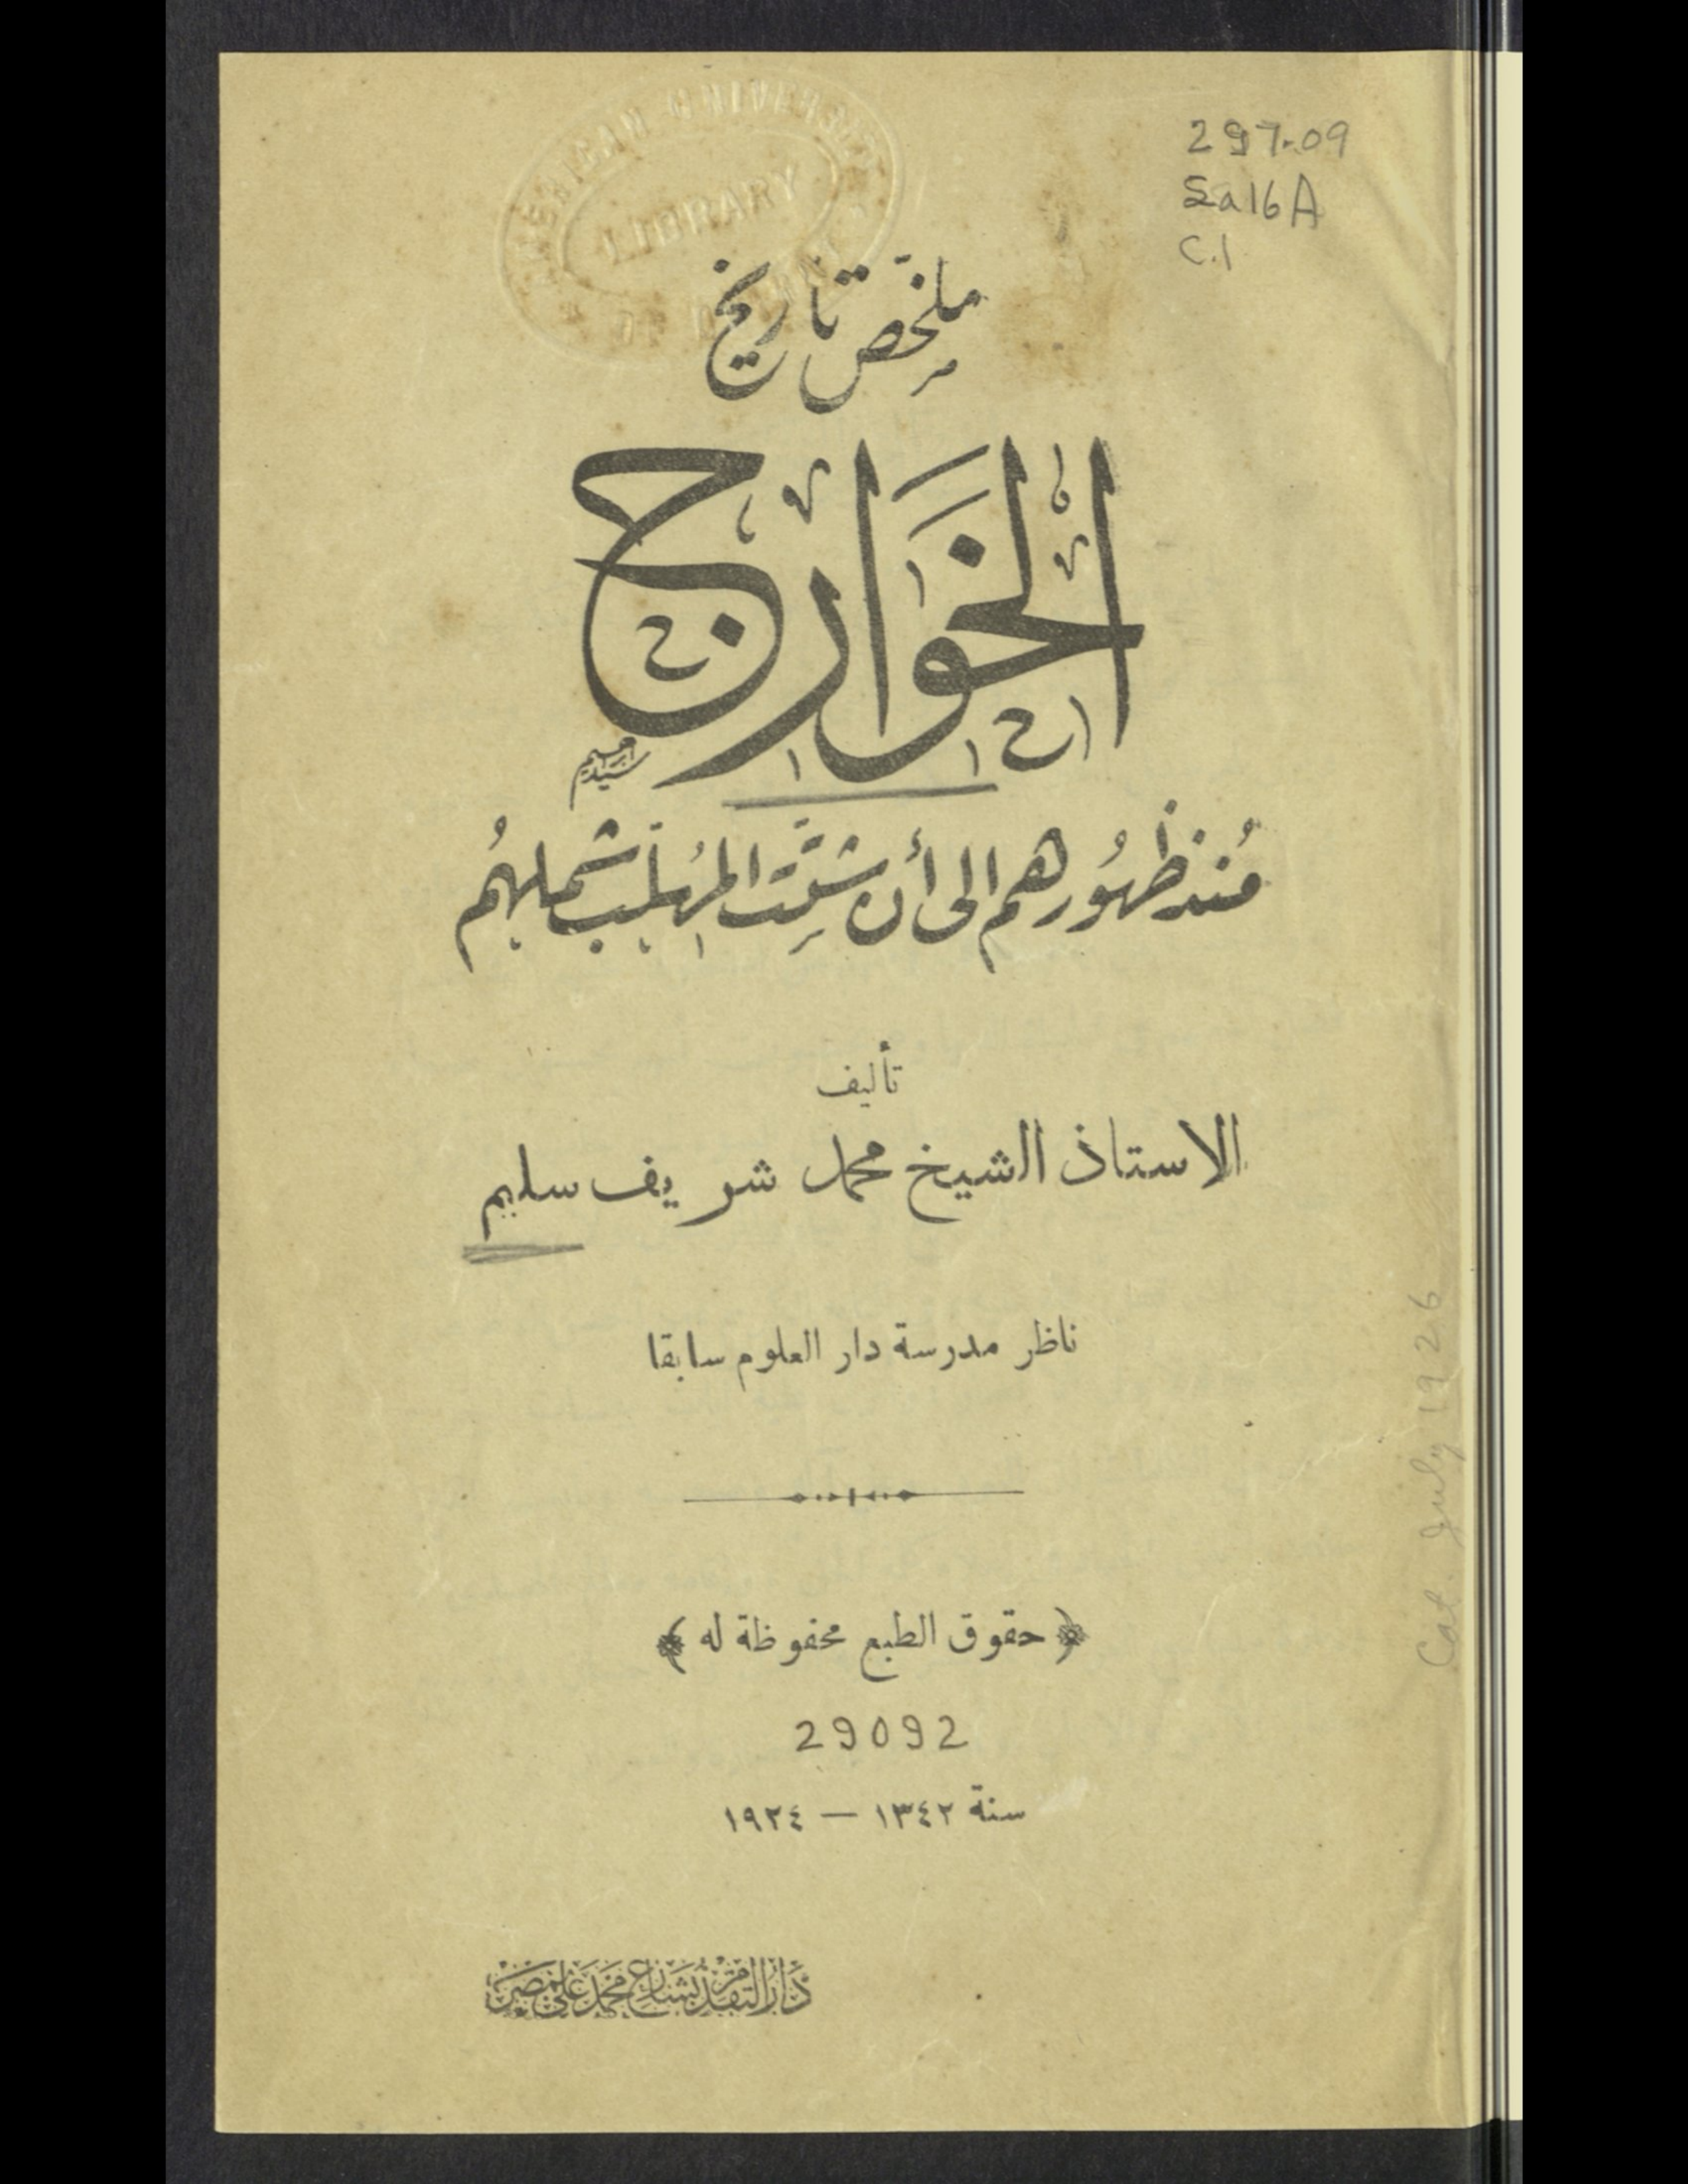 AMERICAN UNIVERSITY
LIBRARY
297.09
Sa16A
C.1
ملخص تاريخ
الخوارج
منذ ظهورهم الى أن شتّت المهلّب شملهم
تأليف
الاستاذ الشيخ محمد شريف سليم
ناظر مدرسة دار العلوم سابقا
حقوق الطبع محفوظة له
29092
سنة ١٣٤٢ — ١٩٢٤
دار التقدم بشارع محمد علي بمصر
Cat. July 1926